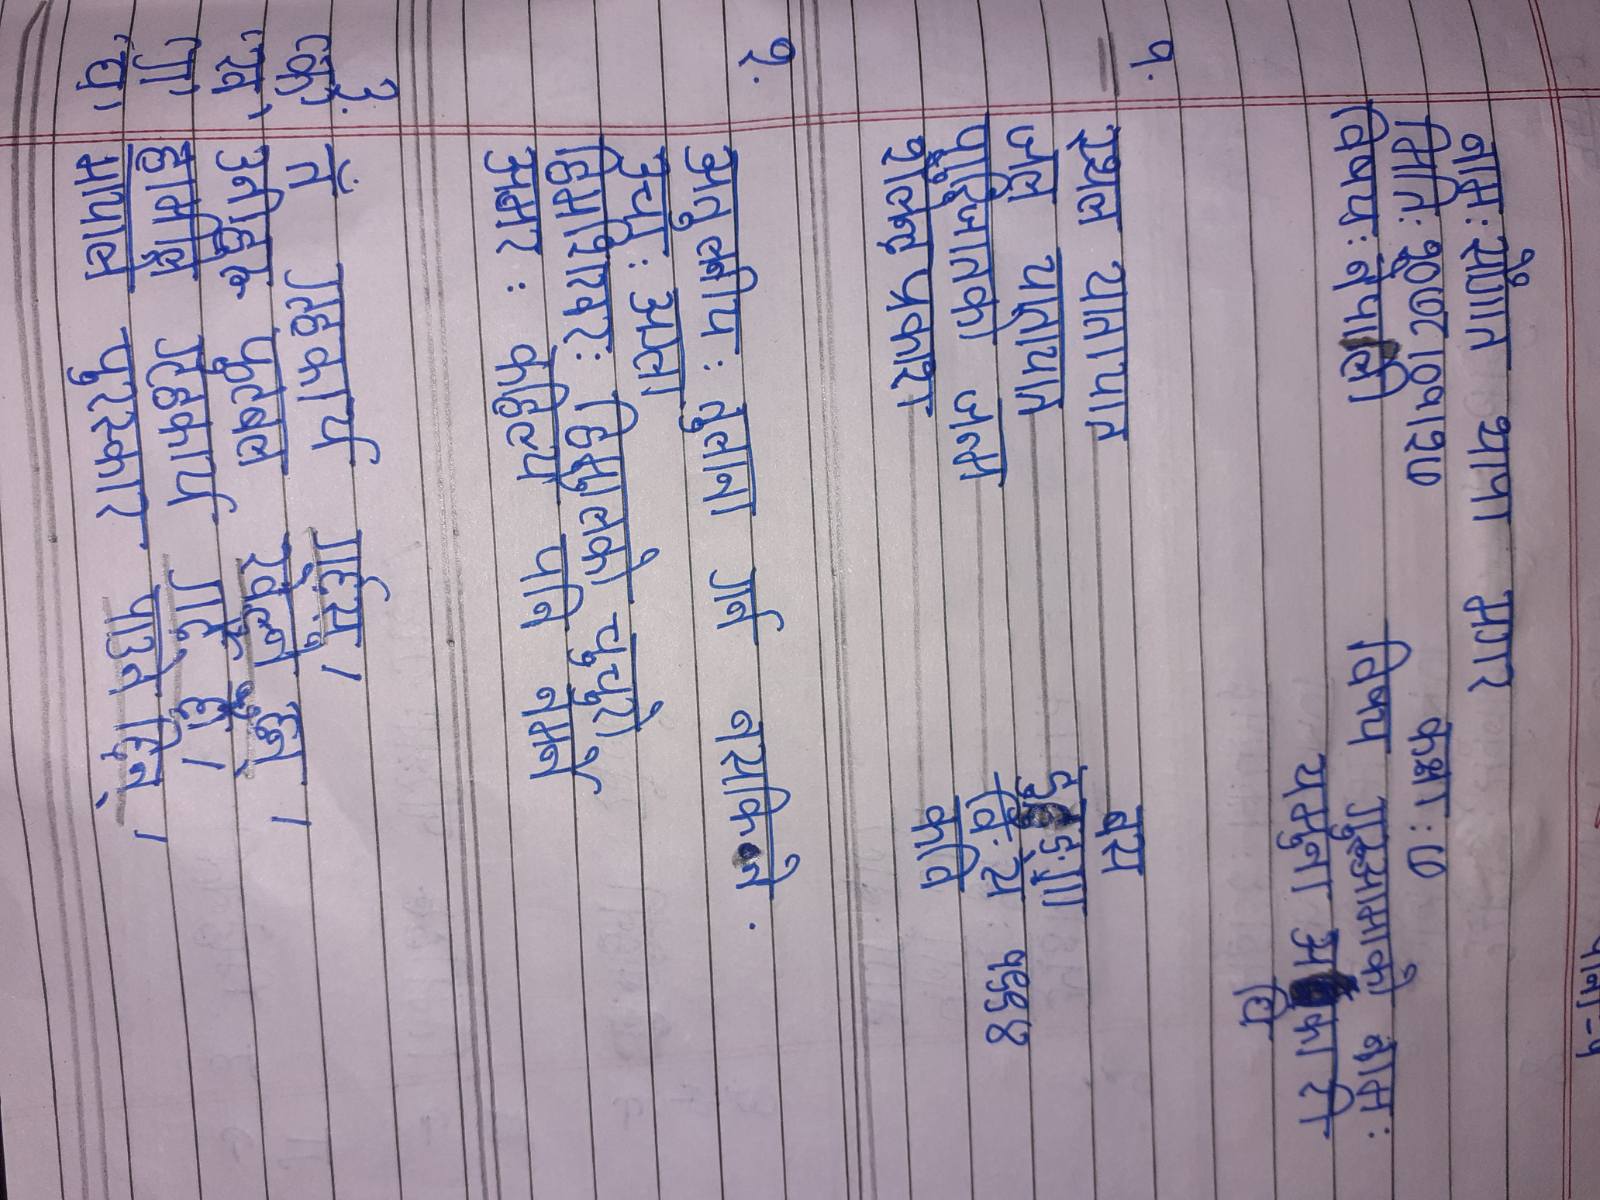 पाना-१
नाम: सौगात थापा मगर
मिति: २०७८।०१।२७ कक्षा: ७
विषय: नेपाली विषय गुरुआमाको नाम:
यमुना अ कारी
धि
१.
स्थल यातायात बस
जल यातायात डुङ्गा
पारिजातको जन्म वि: सं १९९४
शैलेन्द्र प्रकाश कवि
२.
अतुलनीय: तुलना गर्न नसकिने.
उच्च: अग्लो
हिमशिखर: हिमालको चुचुरो
अमर: कहिल्यै पनि नमर्ने
३.
'क' तँ गृहकार्य गर्छस्।
'ख' उनीहरू फुटबल खेल्छन्।
'ग' हामीले गृहकार्य गर्दै छौ।
'घ' गोपाल पुरस्कार पाउने छिन्।